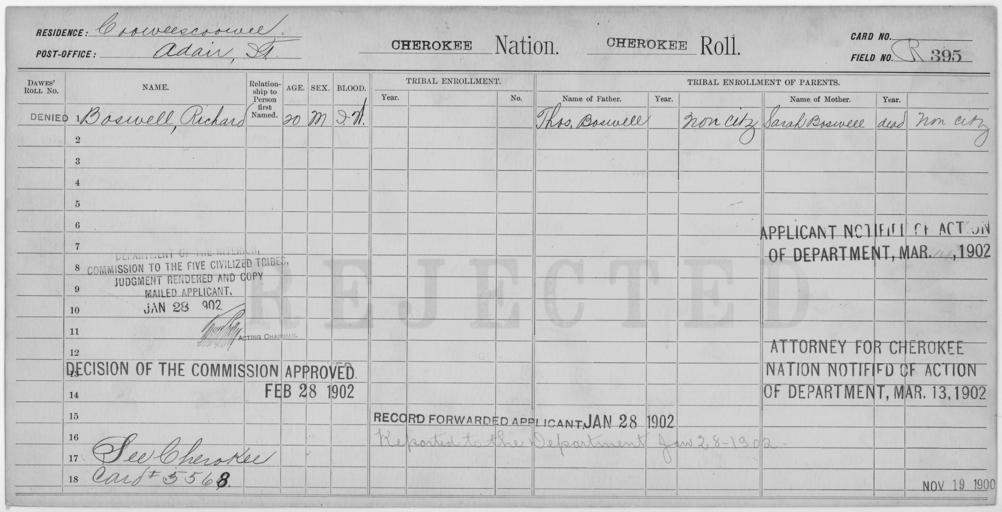 RESIDENCE: Cooweescoowee.
POST-OFFICE: Adair, I.T.
CHEROKEE Nation. CHEROKEE Roll.
CARD NO.
FIELD NO. R 395
DAWES' ROLL NO. NAME. Relationship to Person first Named. AGE. SEX. BLOOD. TRIBAL ENROLLMENT. TRIBAL ENROLLMENT OF PARENTS.
Year. No. Name of Father. Year. Name of Mother. Year.
DENIED 1 Boswell, Richard 20 M I.W. Thos. Boswell Non Citz Sarah Boswell dead Non Citz
2
3
4
5
6
APPLICANT NOTIFIED OF ACTION
7
OF DEPARTMENT, MAR. , 1902
DEPARTMENT OF THE INTERIOR,
8 COMMISSION TO THE FIVE CIVILIZED TRIBES,
JUDGMENT RENDERED AND COPY
9 MAILED APPLICANT,
REJECTED
10 JAN 28 902
11 ACTING CHAIRMAN.
12
ATTORNEY FOR CHEROKEE
13 DECISION OF THE COMMISSION APPROVED.
NATION NOTIFIED OF ACTION
14 FEB 28 1902
OF DEPARTMENT, MAR. 13, 1902
15 RECORD FORWARDED APPLICANT, JAN 28 1902
16 Reported to the Department Jan 28-1902-
17 See Cherokee
18 Card # 5568.
NOV 19 1900